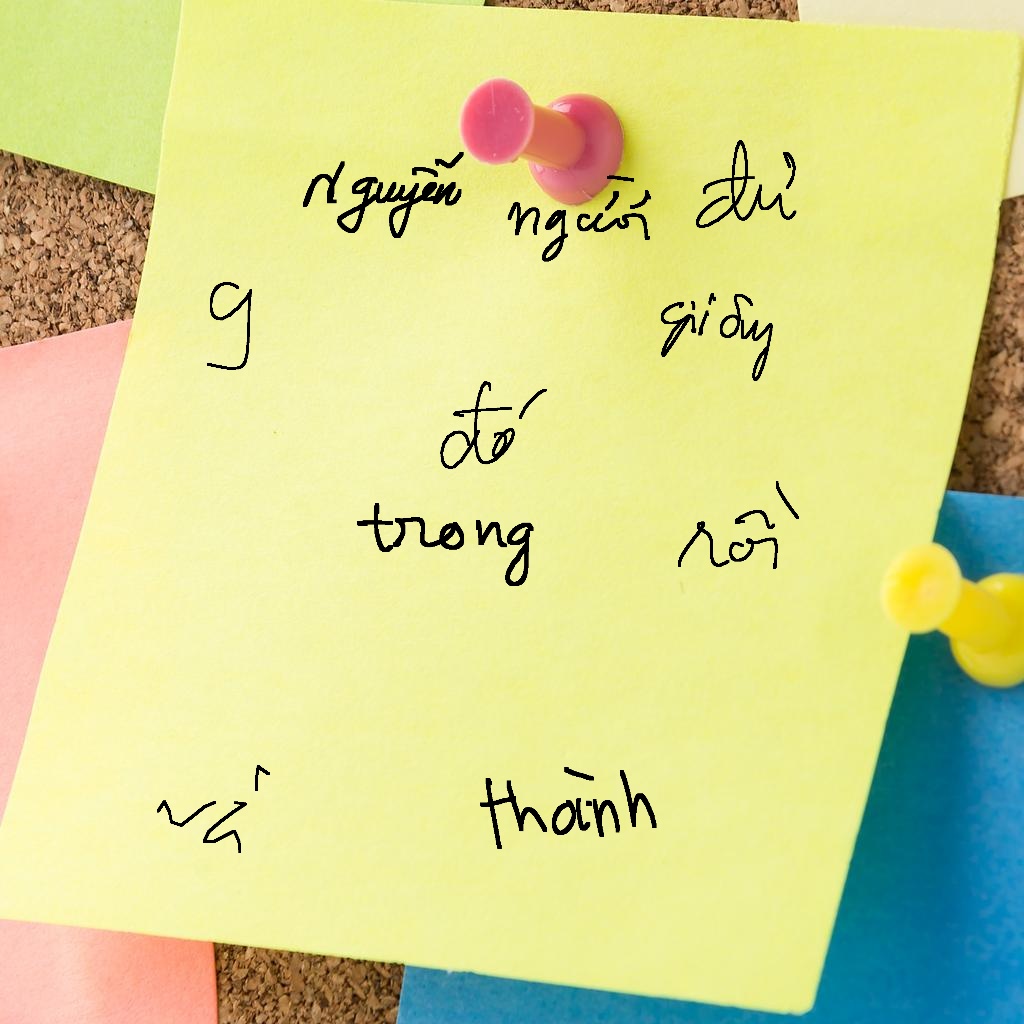 Nguyễn người đủ
9 giây
đó
trong rồi
thành